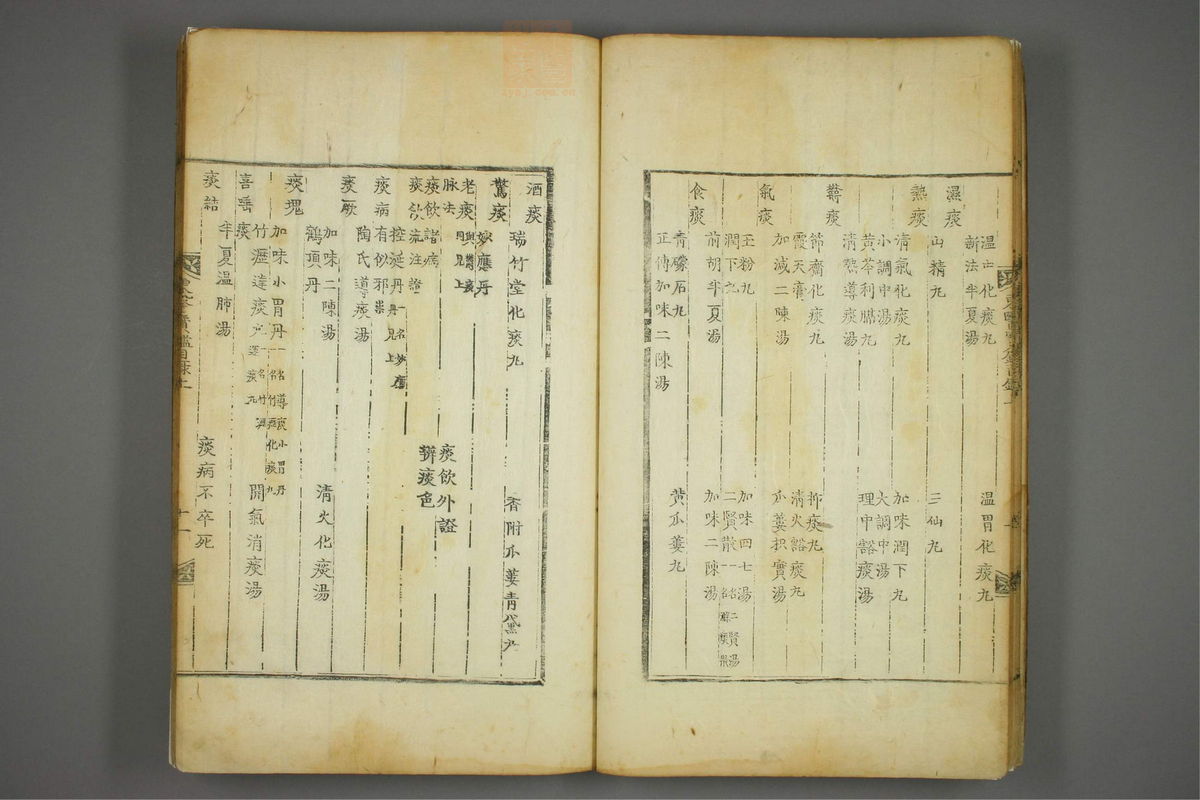 濕痰
温中化痰丸 温胃化痰丸
新法半夏湯
山精丸 三仙丸
熱痰
清氣化痰丸 加味潤下丸
小調中湯 大調中湯
黄芩利膈丸 理中豁痰湯
清熱導痰湯
欝痰
節齋化痰丸 抑痰丸
霞天膏 清火豁痰丸
加減二陳湯 瓜蔞枳實湯
氣痰
玉粉丸 加味四七湯
潤下丸 二賢散一名二賢湯
前胡半夏湯 加味二陳湯
食痰
青礞石丸 黄瓜蔞丸
正傳加味二陳湯
酒痰
瑞竹堂化痰丸 香附瓜蔞青黛丸
驚痰
妙應丹
老痰與欝痰同見上
脉法
痰飲諸病 痰飲外證
痰飲流注證 辨痰色
控涎丹一名妙應丹見上
痰病有似邪祟
陶氏導痰湯
痰厥
加味二陳湯 清火化痰湯
鶴頂丹
痰塊
加味小胃丹一名導痰小胃丹一名竹瀝化痰丸 開氣消痰湯
竹瀝達痰丸一名竹瀝運痰丸
喜唾痰
半夏温肺湯
痰結
痰病不卒死
十一